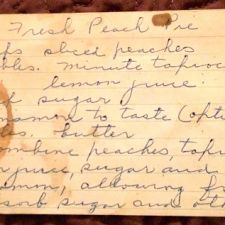 Fresh Peach Pie
fs sliced peaches
bles. Minute tapioc
lemon juice
sugar
namon to taste (opti
les. butter
ombine peaches, tapi
juice, sugar and
amon, allowing fr
sorb sugar and oth